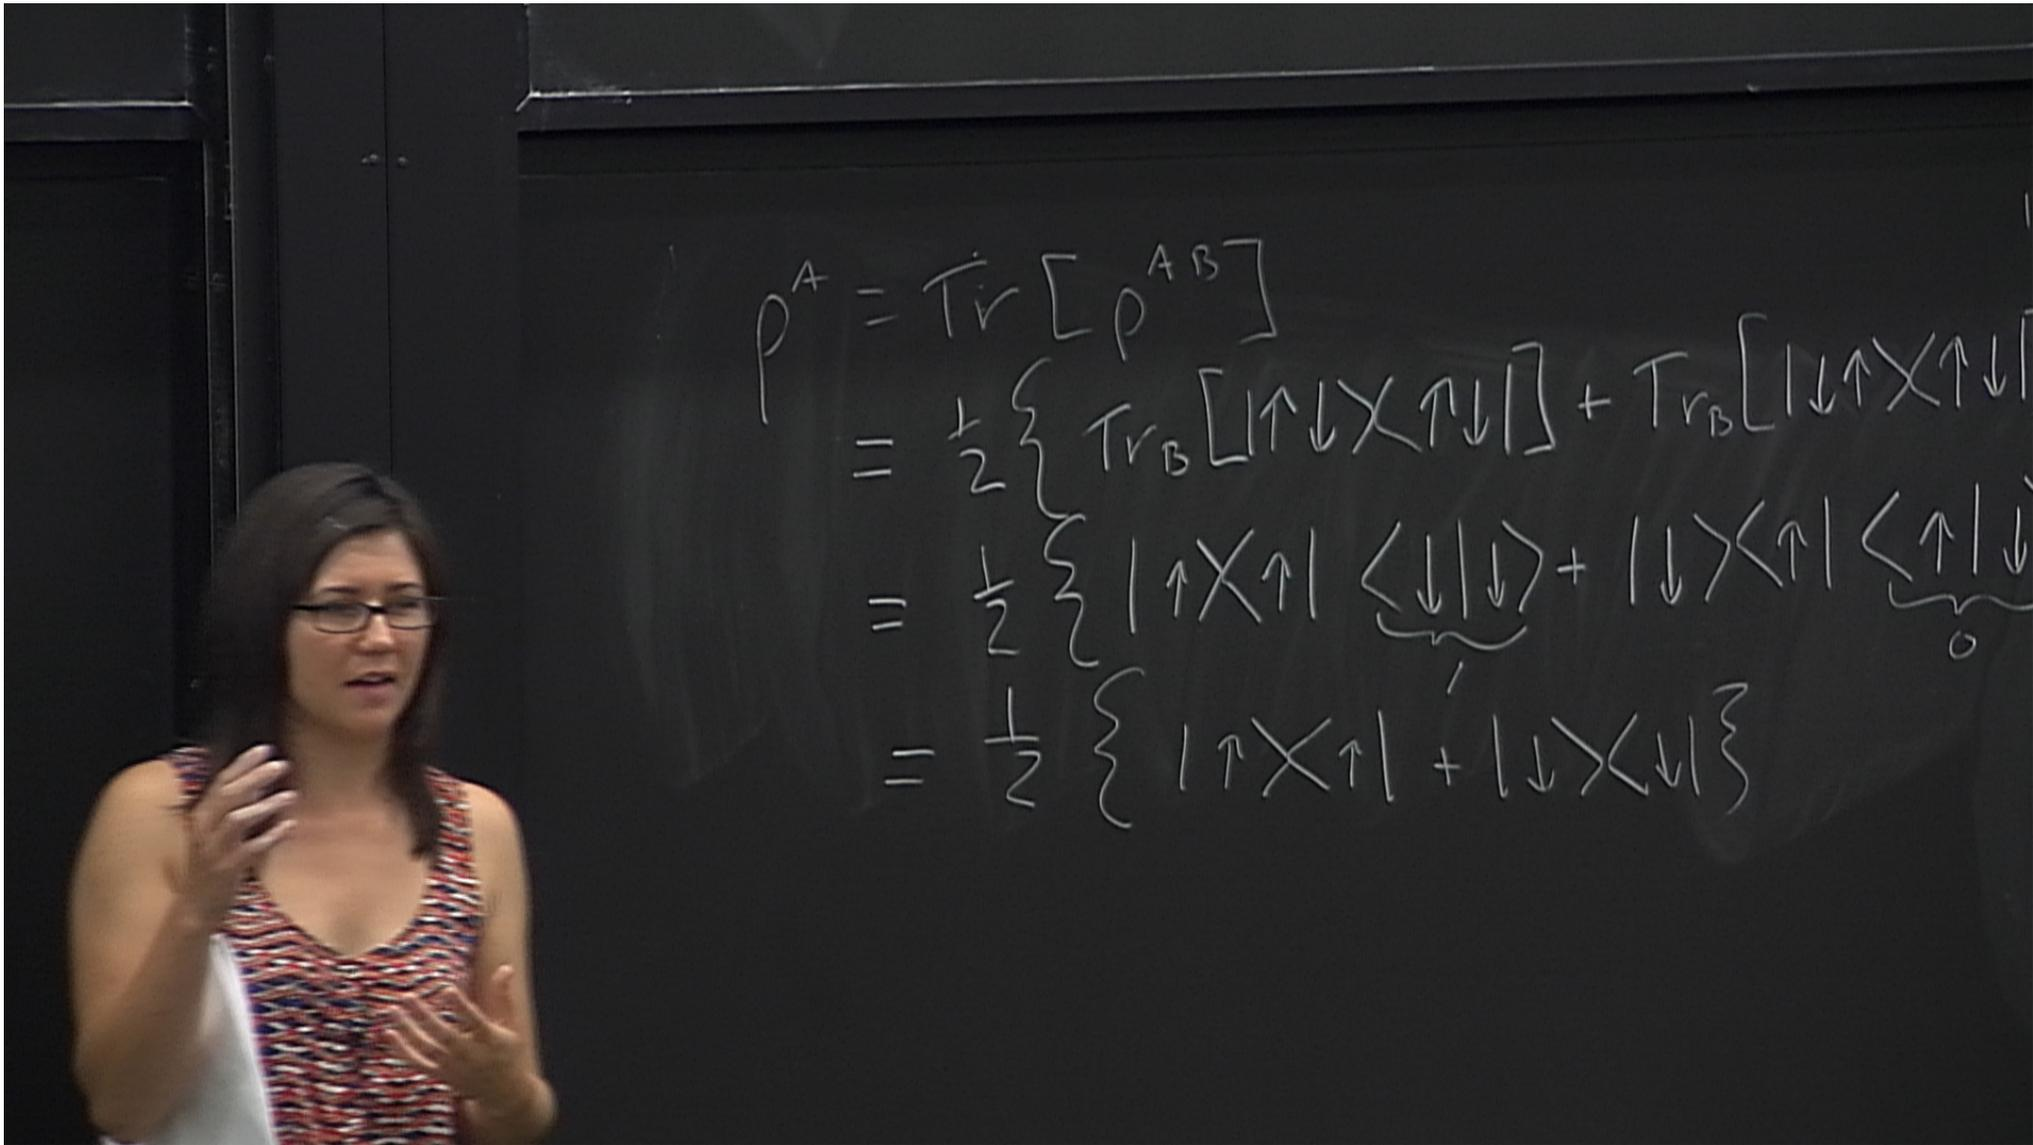 ρ^A = Tr [ρ^{AB}]
= 1/2 { Tr_B [|↑↓⟩⟨↑↓|] + Tr_B [|↓↑⟩⟨↑↓|
= 1/2 { |↑⟩⟨↑| ⟨↓|↓⟩ + |↓⟩⟨↑| ⟨↑|↓⟩
1 0
= 1/2 { |↑⟩⟨↑| + |↓⟩⟨↓| }